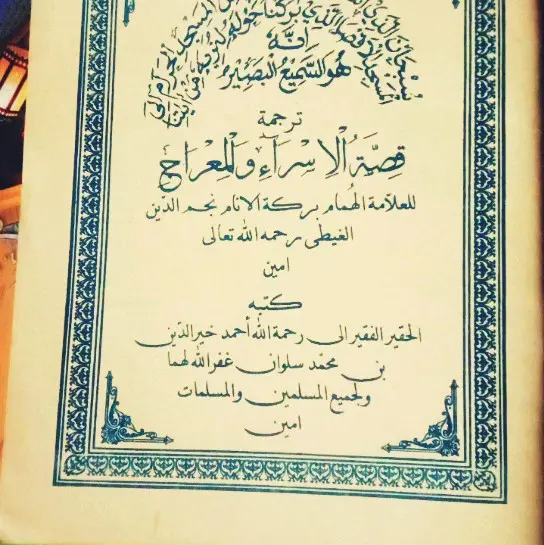 سبحان الذي
المسجد الحرام الى
المسجد الاقصا الذي بركنا حوله لنريه من
انه
هو السميع البصير
ترجمة
قصة الاسراء والمعراج
للعلامة الهمام بركة الانام نجم الدين
الغيطى رحمه الله تعالى
امين
كتبه
الحقير الفقير الى رحمة الله أحمد خير الدين
بن محمد سلوان غفر الله لهما
ولجميع المسلمين والمسلمات
امين